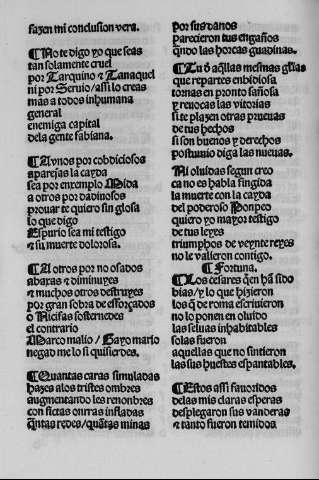 fazen mi conclusion vera.
¶No te digo yo que seas
tan solamente cruel
por Tarquino ⁊ Tanaquel
ni por Seruio / assi lo creas
mas a todos inhumana
general
enemiga capital
dela gente fabiana.
¶A vnos por cobdiciosos
aparejas la cayda
sea por enxemplo Mida
a otros por dadinosos
prouar te quiero sin glosa
lo que digo
Espurio sea mi testigo
⁊ su muerte dolorosa.
¶A otros por no osados
abaxas ⁊ diminuyes
⁊ muchos otros destruyes
por gran sobra de esforçados
o Nicifas sostenedes
el contrario
Marco malio / Gayo mario
negad me lo si quisierdes.
¶Quantas caras simuladas
hazes alos tristes ombres
augmentando les renonbres
con fictas onrras infladas
q̃ntas redes / quãtas minas
por sus daños
parecieron tus engaños
q̃ndo las horcas gaudinas.
¶Tu õ aq̃llas mesmas gl̃ias
que repartes enbidiosa
tornas en pronto sañosa
y reuocas las vitorias
si te plazen otras prueuas
de tus hechos
si son buenos y derechos
postumio diga las nueuas.
Mi oluidas segun creo
ca no es habla fingida
la muerte con la cayda
del poderoso Ponpeo
quiero yo mayor testigo
de tus leyes
triumphos de veynte reyes
no le valieron contigo.
¶Fortuna.
¶Los cesares q̃ en hã sido
dias / y lo que hizieron
los q̃ de roma escriuieron
no lo ponen en oluido
las seluas inhabitables
solas fueron
aquellas que no sintieron
las sus huestes espantables.
¶Estos assi fauoridos
delas mis claras esperas
desplegaron sus vanderas
⁊ tanto fueron temidos